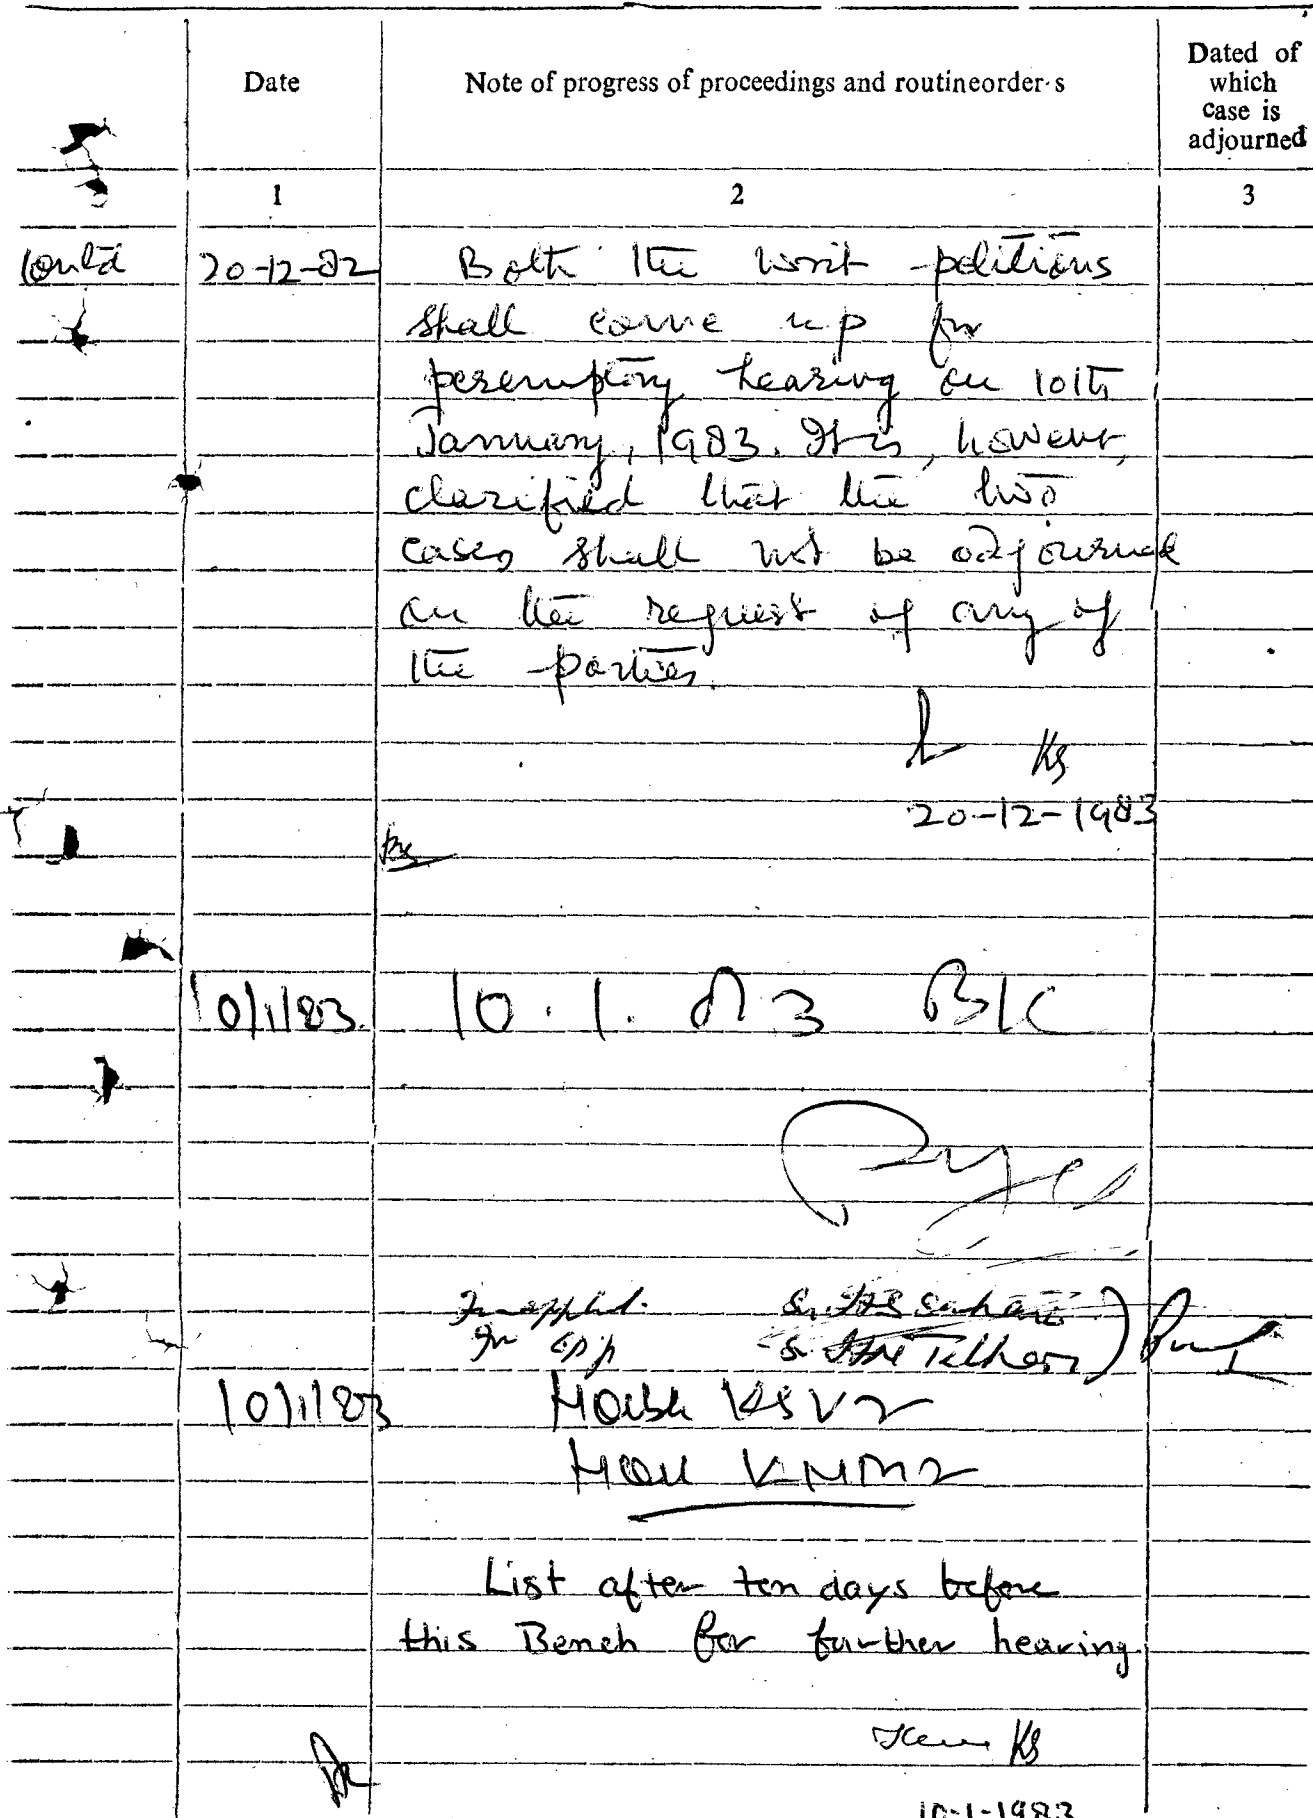 Date
Note of progress of proceedings and routineorder·s
Dated of
which
case is
adjourned
1
2
3
Contd
20-12-82
Both the writ petitions
shall come up for
peremptory hearing on 10th
January, 1983. It is, however,
clarified that the two
cases shall not be adjourned
on the request of any of
the parties.
KS
20-12-1983
10/1/83.
10.1.83
For applt.
For opp
10/1/83
Hon KSVJ
Hon KNMJ
List after ten days before
this Bench for further hearing
KS
10-1-1983